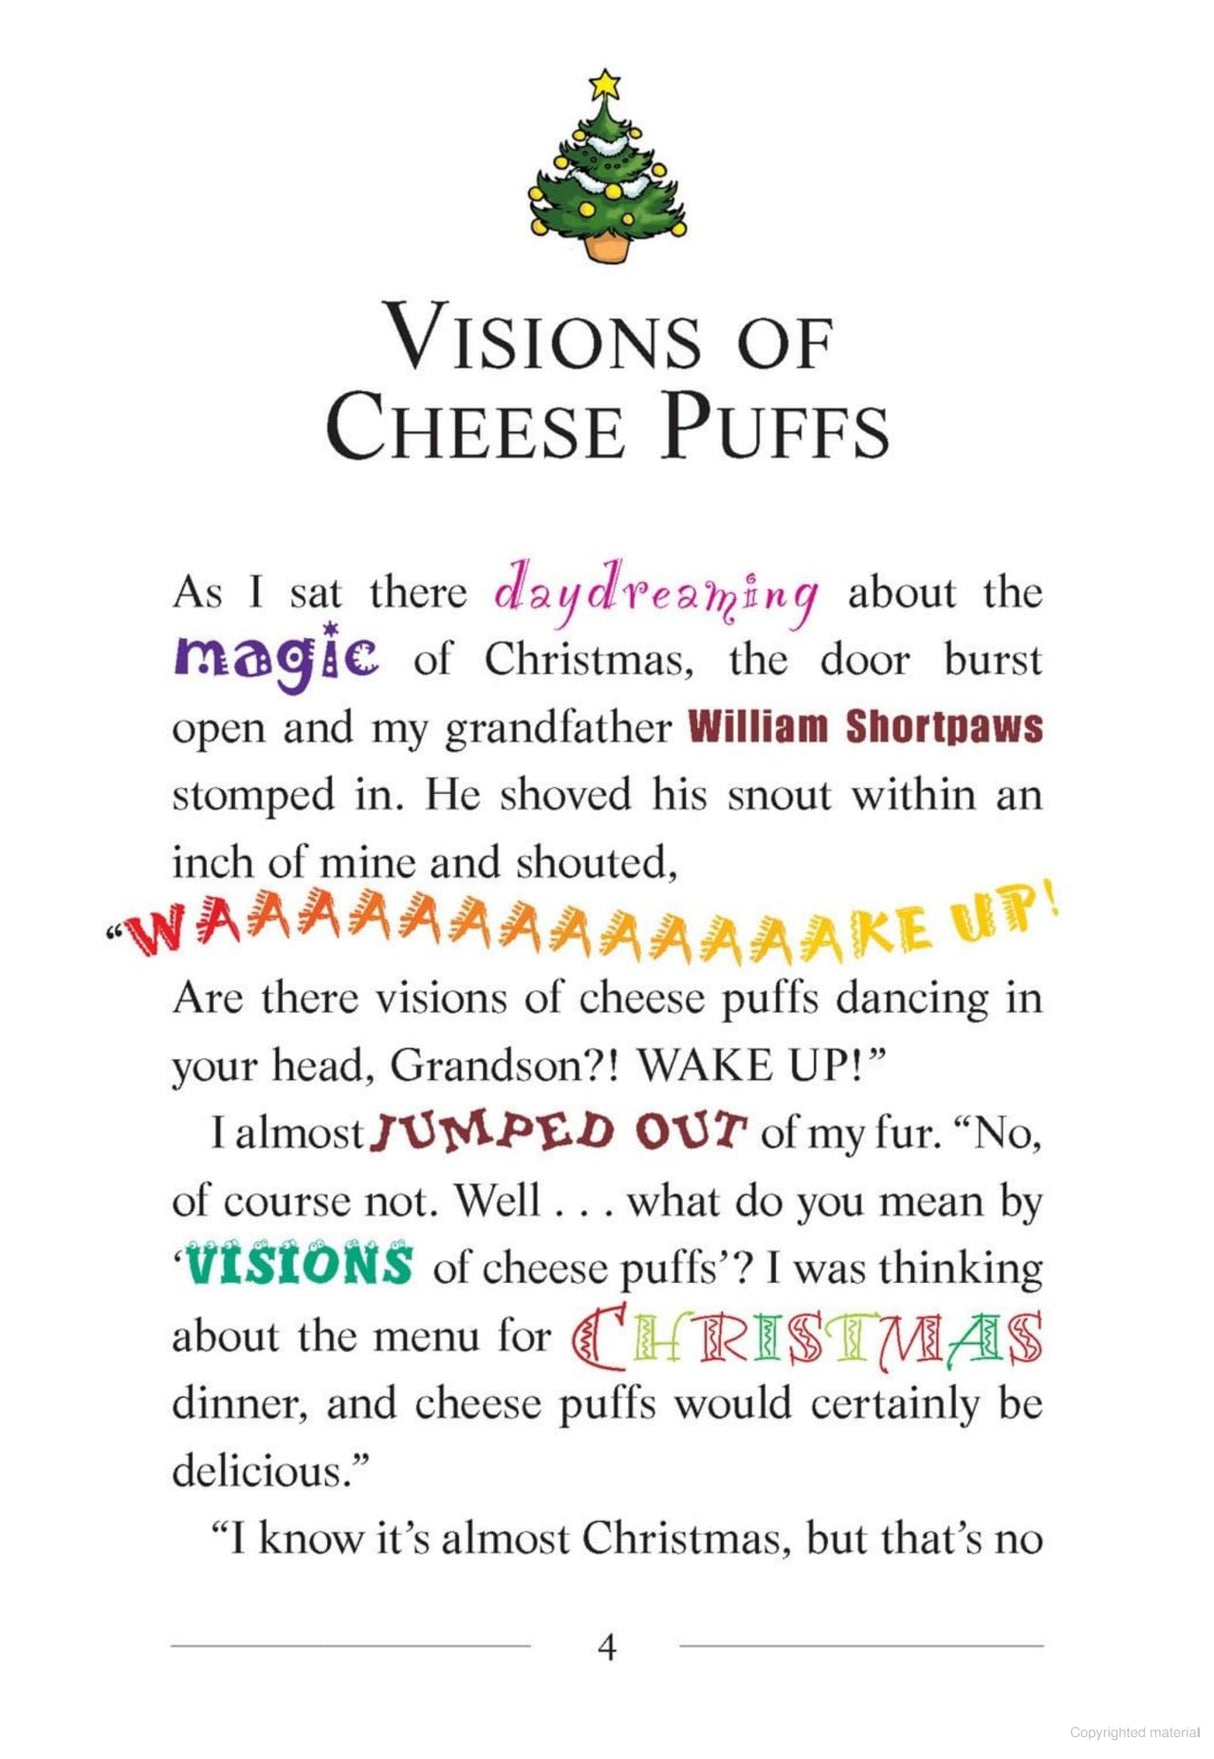 VISIONS OF
CHEESE PUFFS
As I sat there daydreaming about the
magic of Christmas, the door burst
open and my grandfather William Shortpaws
stomped in. He shoved his snout within an
inch of mine and shouted,
“WAAAAAAAAAAAAAKE UP!
Are there visions of cheese puffs dancing in
your head, Grandson?! WAKE UP!”
I almost JUMPED OUT of my fur. “No,
of course not. Well . . . what do you mean by
‘VISIONS of cheese puffs’? I was thinking
about the menu for CHRISTMAS
dinner, and cheese puffs would certainly be
delicious.”
“I know it’s almost Christmas, but that’s no
4
Copyrighted material